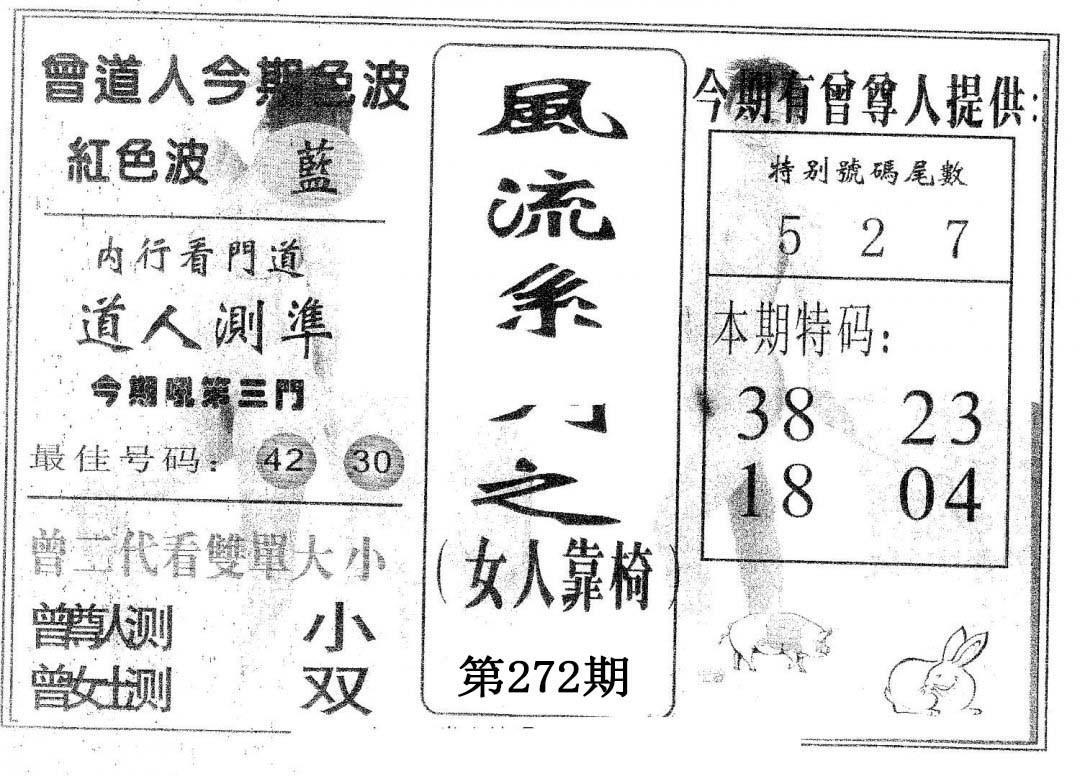 曾道人今期色波
紅色波 藍
内行看門道
道人測準
今期吼第三門
最佳号码: 42 30
曾二代看雙單大小
曾尊人测 小
曾女士测 双
風
流
系
之
(女人靠椅)
第272期
今期有曾尊人提供:
特别號碼尾數
5 2 7
本期特码:
38 23
18 04